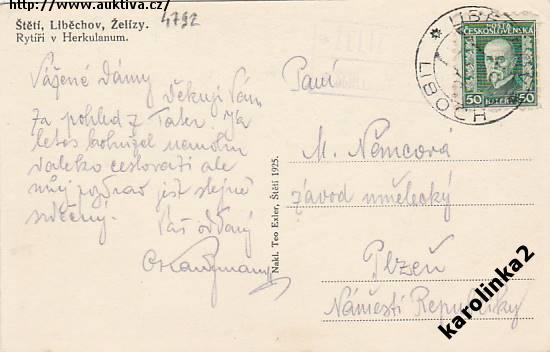 http://www.auktiva.cz/
4792
Štětí, Liběchov, Želízy.
Rytíři v Herkulanum.
Vážené Dámy
Děkuji Vám
za pohled z Tater. Já
letos bohužel nemohu
daleko cestovati ale
můj pozdrav jest stejně
srdečný.
Váš oddaný
Nakl. Teo Exler, Štětí 1925.
Paní
M. Němcová
závod umělecký
Plzeň
Náměstí Republiky
POŠTA
ČESKOSLOVENSKÁ
50 50
LIBOCH
karolinka2